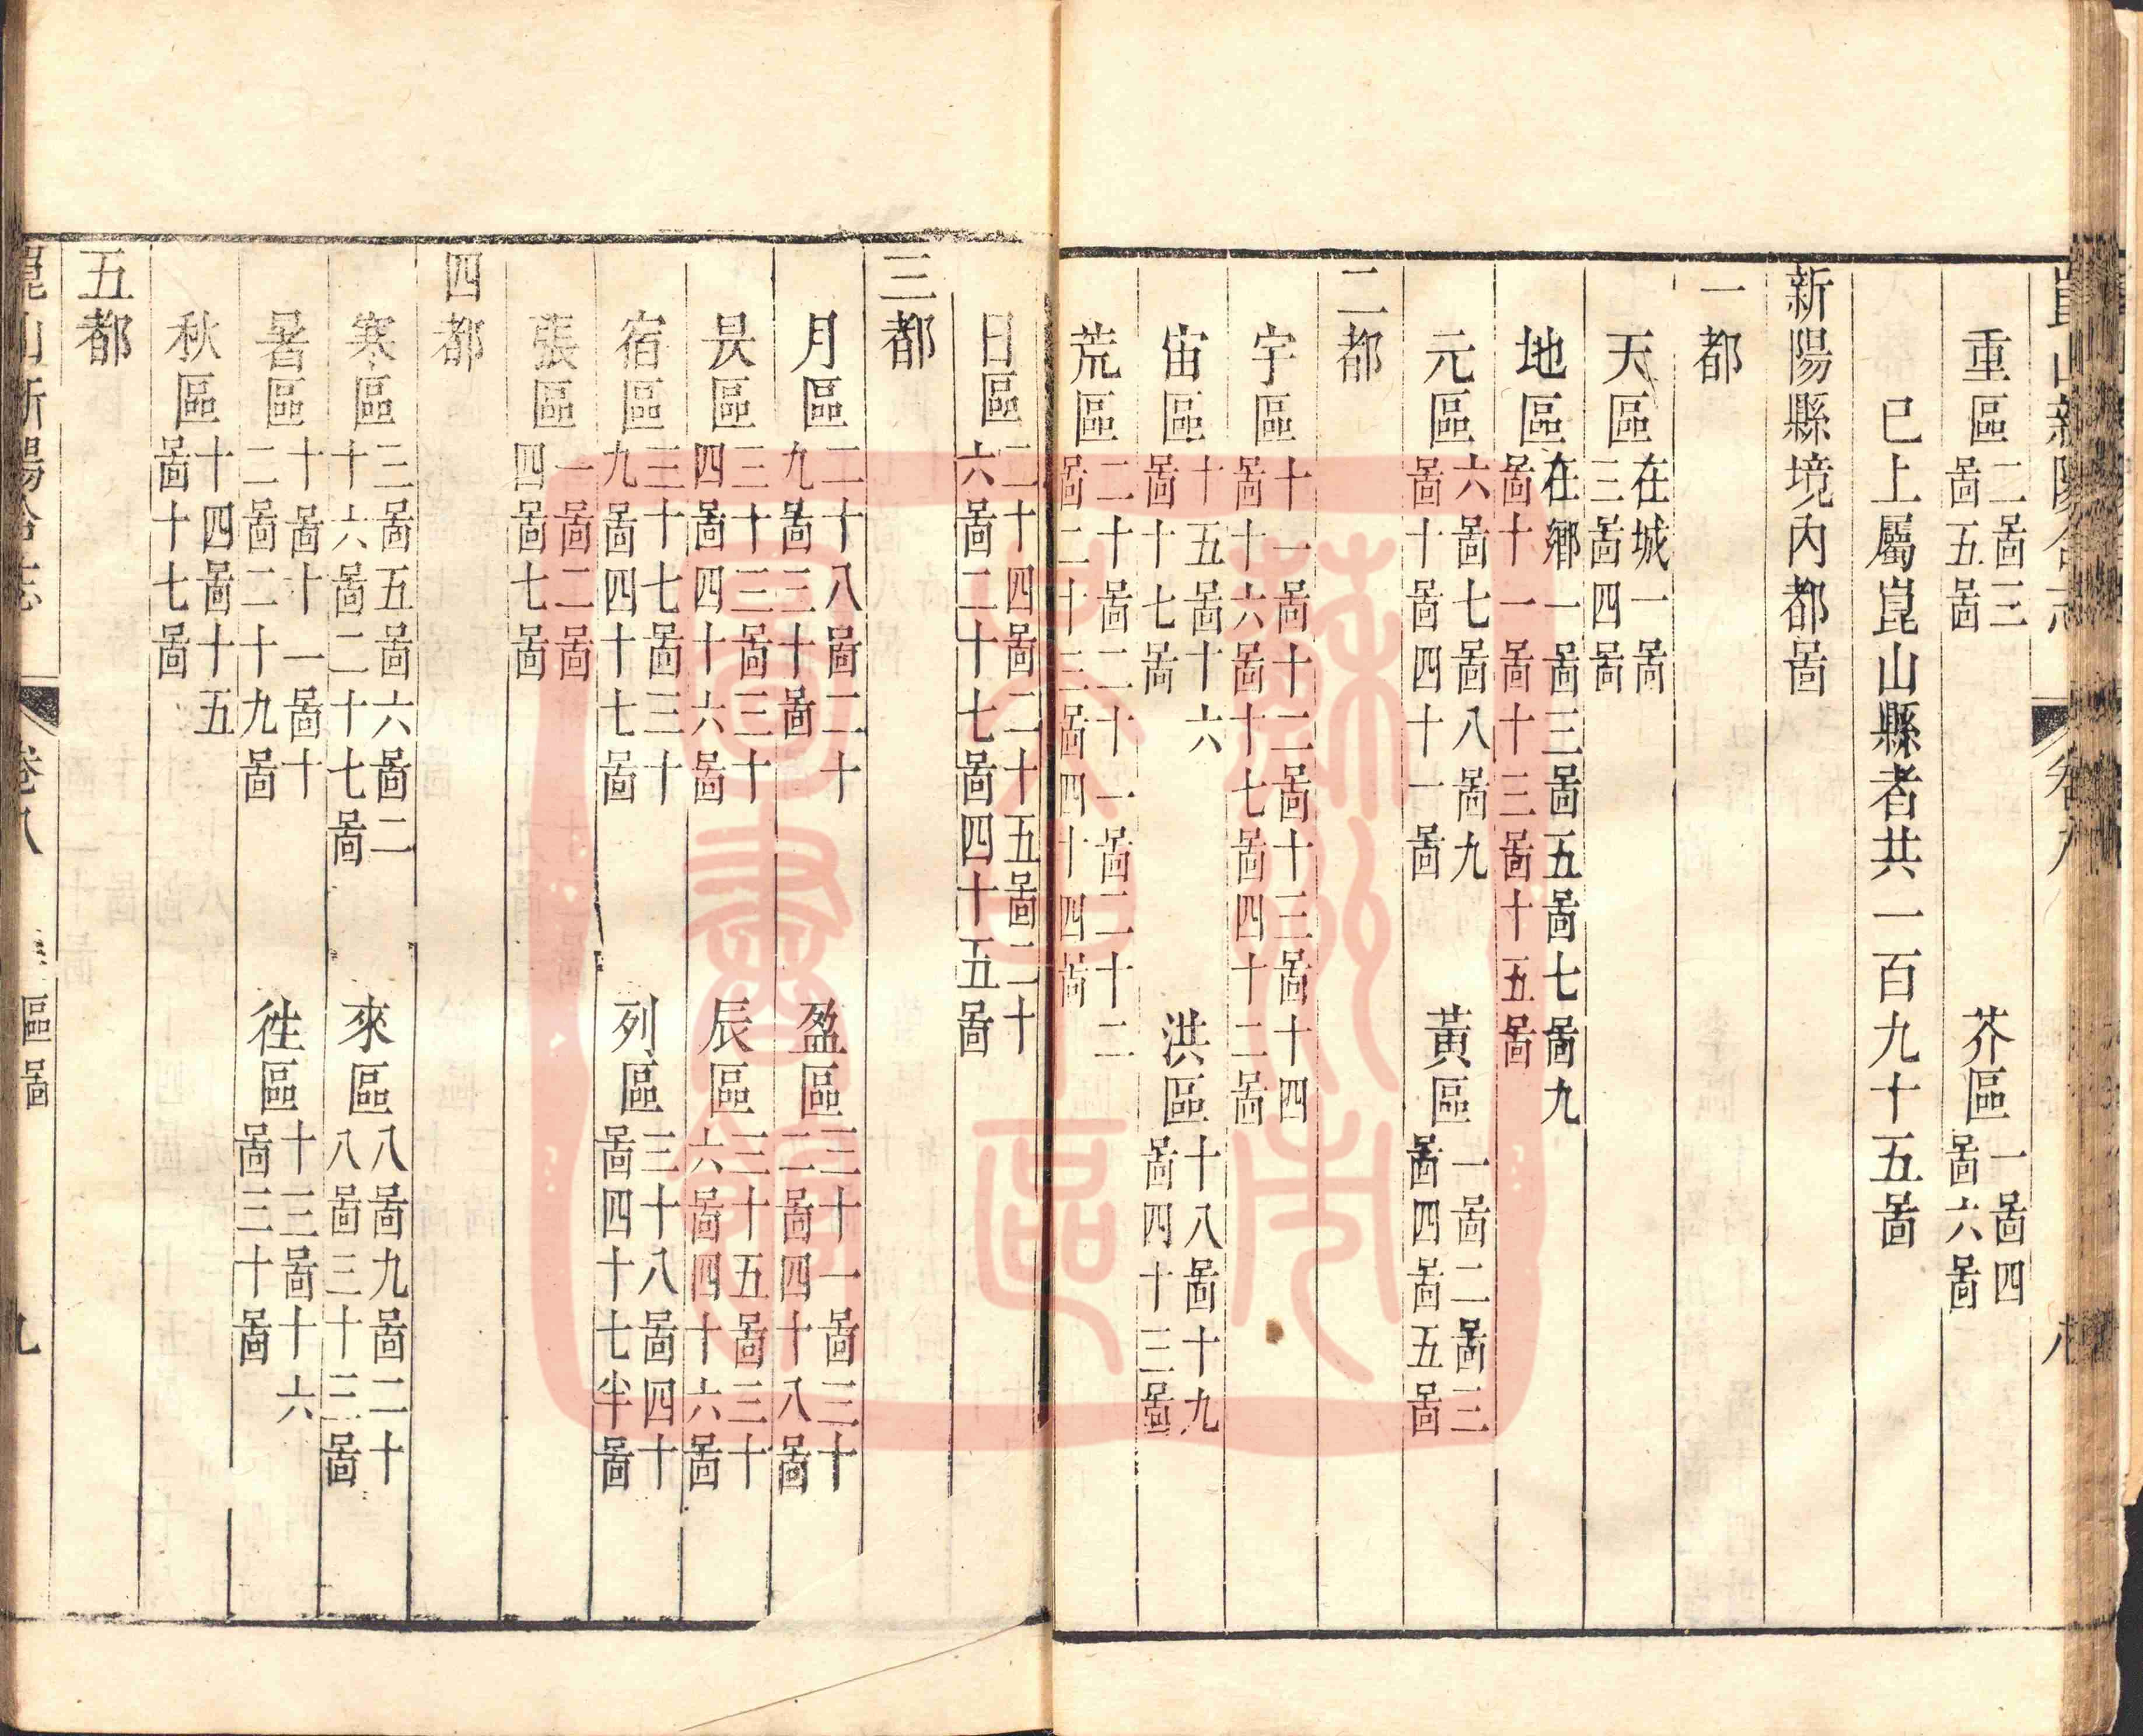 崑山新陽合志 卷八 八
重區 二啚三
啚五啚
芥區 一啚四
啚六啚
已上屬崑山縣者共一百九十五啚
新陽縣境內都啚
一都
天區 在城一啚
三啚四啚
地區 在鄉一啚三啚五啚七啚九
啚十一啚十三啚十五啚
元區 六啚七啚八啚九
啚十啚四十一啚
黃區 一啚二啚三
啚四啚五啚
二都
宇區 十一啚十二啚十三啚十四
啚十六啚十七啚四十二啚
宙區 十五啚十六
啚十七啚
洪區 十八啚十九
啚四十三啚
荒區 二十啚二十一啚二十二
啚二十三啚四十四啚
日區 二十四啚二十五啚二十
六啚二十七啚四十五啚
三都
月區 二十八啚二十
九啚三十啚
盈區 三十一啚三十
二啚四十八啚
昃區 三十三啚三十
四啚四十六啚
辰區 三十五啚三十
六啚四十六啚
宿區 三十七啚三十
九啚四十七啚
列區 三十八啚四十
啚四十七半啚
張區 一啚二啚
四啚七啚
四都
寒區 三啚五啚六啚二
十六啚二十七啚
來區 八啚九啚二十
八啚三十三啚
暑區 十啚十一啚十
二啚二十九啚
徃區 十三啚十六
啚三十啚
秋區 十四啚十五
啚十七啚
五都
崑山新陽合志 卷八 區啚 九
蘇州市吳中區圖書館